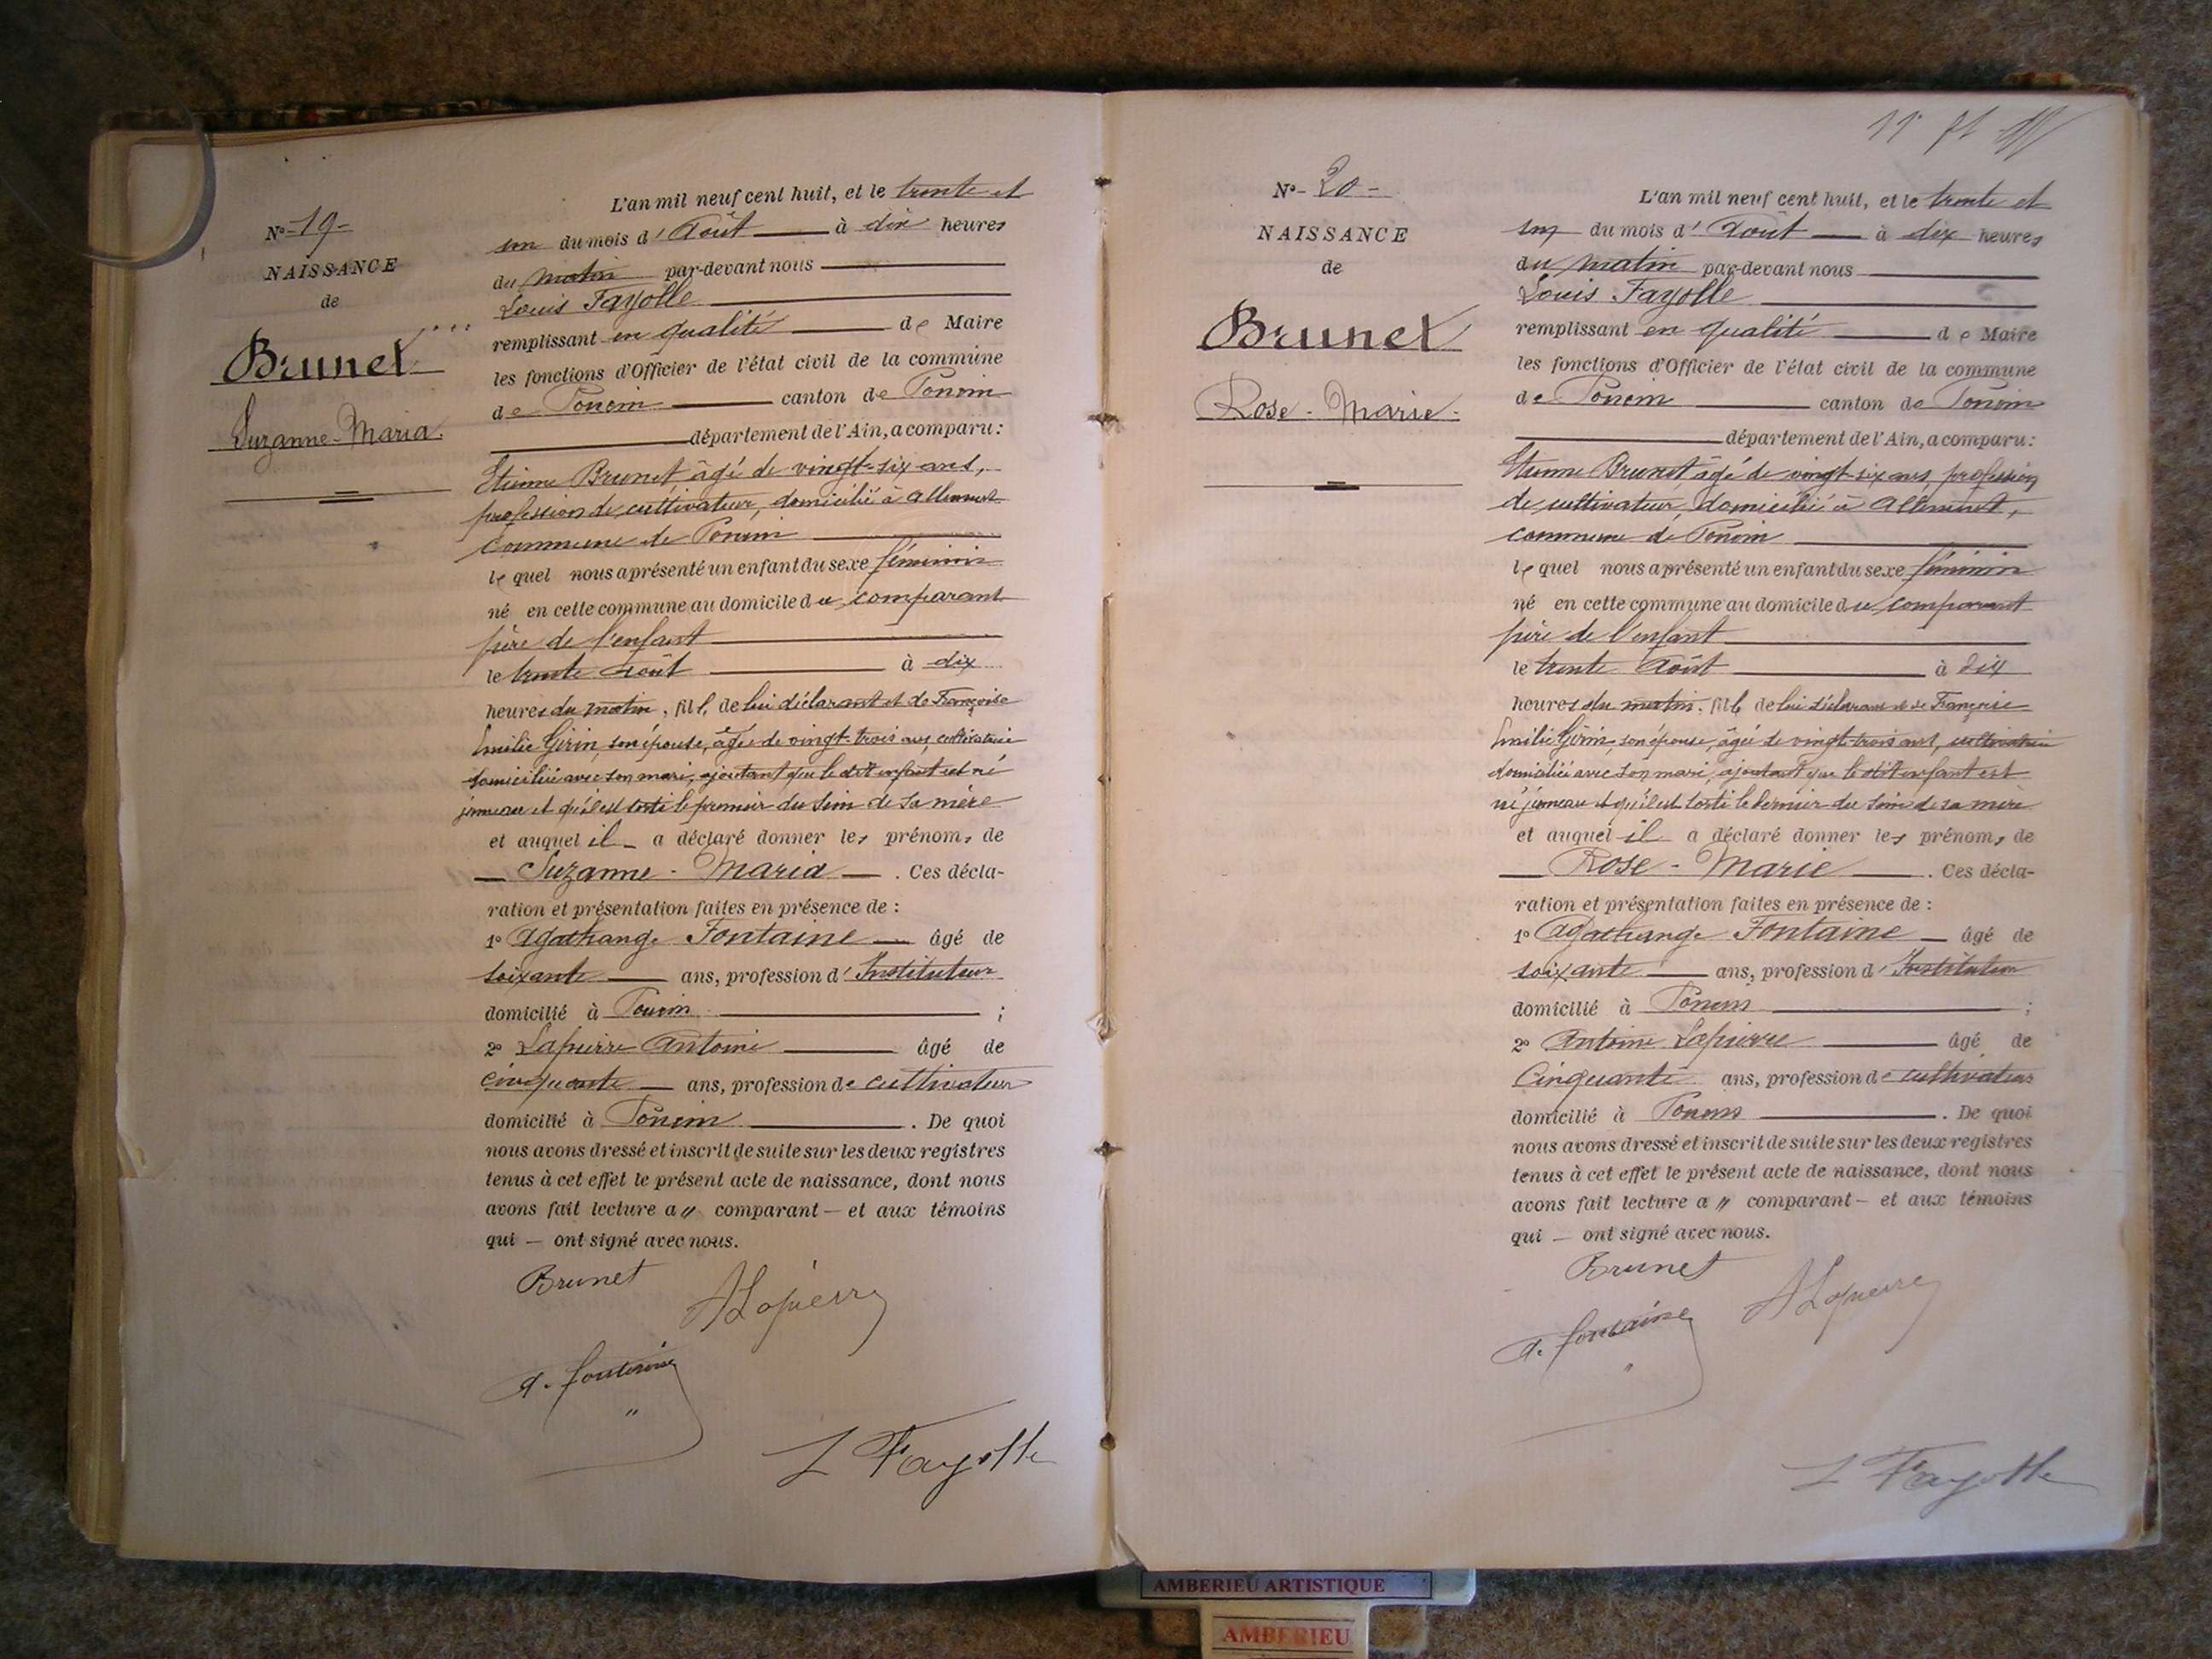 Nº 19
NAISSANCE
de
Brunet
Suzanne-Maria
L'an mil neuf cent huit, et le trente et
un du mois d'Août à dix heures
du matin par-devant nous
Louis Fayolle
remplissant en qualité de Maire
les fonctions d'Officier de l'état civil de la commune
de Poncin canton de Poncin
département de l'Ain, a comparu :
Etienne Brunet, âgé de vingt-six ans,
profession de cultivateur, domicilié à Allement
commune de Poncin
lequel nous a présenté un enfant du sexe féminin
né en cette commune au domicile du comparant
père de l'enfant
le trente août à dix
heures du matin, fils de lui déclarant et de Françoise
Emilie Girin, son épouse, âgée de vingt-trois ans, cultivatrice
domiciliée avec son mari, ajoutant que le dit enfant est né
jumeau et qu'il est sorti le premier du sein de sa mère
et auquel il a déclaré donner les prénoms de
Suzanne - Maria. Ces décla-
ration et présentation faites en présence de :
1º Agathange Fontaine âgé de
soixante ans, profession d'Instituteur
domicilié à Poncin ;
2º Lapierre Antoine âgé de
cinquante ans, profession de cultivateur
domicilié à Poncin. De quoi
nous avons dressé et inscrit de suite sur les deux registres
tenus à cet effet le présent acte de naissance, dont nous
avons fait lecture a〃 comparant - et aux témoins
qui - ont signé avec nous.
Brunet
ALapierre
A. fontaine
L Fayolle
Nº 20
NAISSANCE
de
Brunet
Rose - Marie
L'an mil neuf cent huit, et le trente et
un du mois d'Août à dix heures
du matin par-devant nous
Louis Fayolle
remplissant en qualité de Maire
les fonctions d'Officier de l'état civil de la commune
de Poncin canton de Poncin
département de l'Ain, a comparu :
Etienne Brunet, âgé de vingt-six ans, profession
de cultivateur, domicilié à Allement,
commune de Poncin
lequel nous a présenté un enfant du sexe féminin
né en cette commune au domicile du comparant
père de l'enfant
le trente Août à dix
heures du matin, fils de lui déclarant et de Françoise
Emilie Girin son épouse, âgée de vingt-trois ans, cultivatrice
domiciliée avec son mari, ajoutant que le dit enfant est
né jumeau et qu'il est sorti le dernier du sein de sa mère
et auquel il a déclaré donner les prénoms de
Rose - Marie. Ces décla-
ration et présentation faites en présence de :
1º Agathange Fontaine âgé de
soixante ans, profession d'Instituteur
domicilié à Poncin ;
2º Antoine Lapierre âgé de
Cinquante ans, profession de cultivateur
domicilié à Poncin. De quoi
nous avons dressé et inscrit de suite sur les deux registres
tenus à cet effet le présent acte de naissance, dont nous
avons fait lecture a〃 comparant - et aux témoins
qui - ont signé avec nous.
Brunet
ALapierre
A. fontaine
L Fayolle
AMBERIEU ARTISTIQUE
AMBERIEU